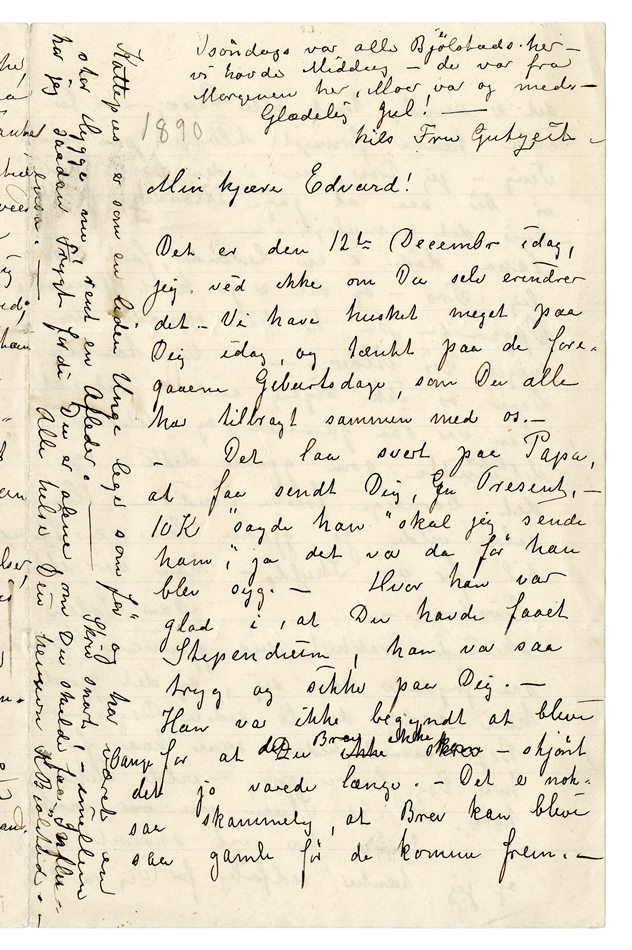 Isöndags var alle Bjölstads her –
vi havde Middag – de var fra
Morgenen her, Moer var og med. –
Glædelig Jul! –
hils Fru Gutzeit –
1890
Min kjære Edvard!
Det er den 12te December idag,
jeg ved ikke om Du selv erindrer
det. – Vi have husket meget paa
Dig idag, og tænkt paa de fore-
gaaene Geburtsdage, som Du alle
har tilbragt sammen med os. –
– Det laa svert paa Papa,
at faa sendt Dig, en Present, –
10 K "sagde han" skal jeg sende
ham", ja det va da før han
blev syg. – Hvor han var
glad i, at Du havde faaet
Stependium, han va saa
tryg og sikke paa Dig. –
Han va ikke begyndt at blive
bange for at Du ikke skrev – skjönt
det Brev ikke kom
det jo varede længe. – Det e nok-
saa skammelig, at Brev kan blive
saa gamle før de komme frem. –
Kattepus er som en liden Unge lege som før og har været en
stor Hygge nu rent en Afleder. – Skriv snart! – imellem
har jeg saadan Frygt fordi Du er alene, om Du skulde faa Influ-
enza. – Alle hilse Din KBjølstad. –